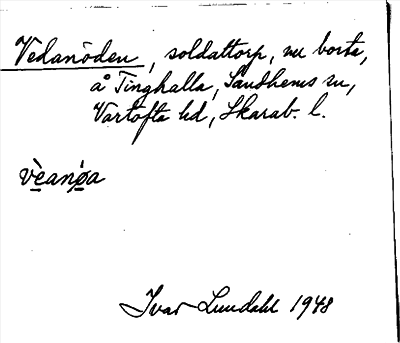 Vedanöden, soldattorp, nu borta,
å Tinghalla, Sandhems sn,
Vartofta hd, Skarab. l.
vèanǿa
Ivar Lundahl 1948